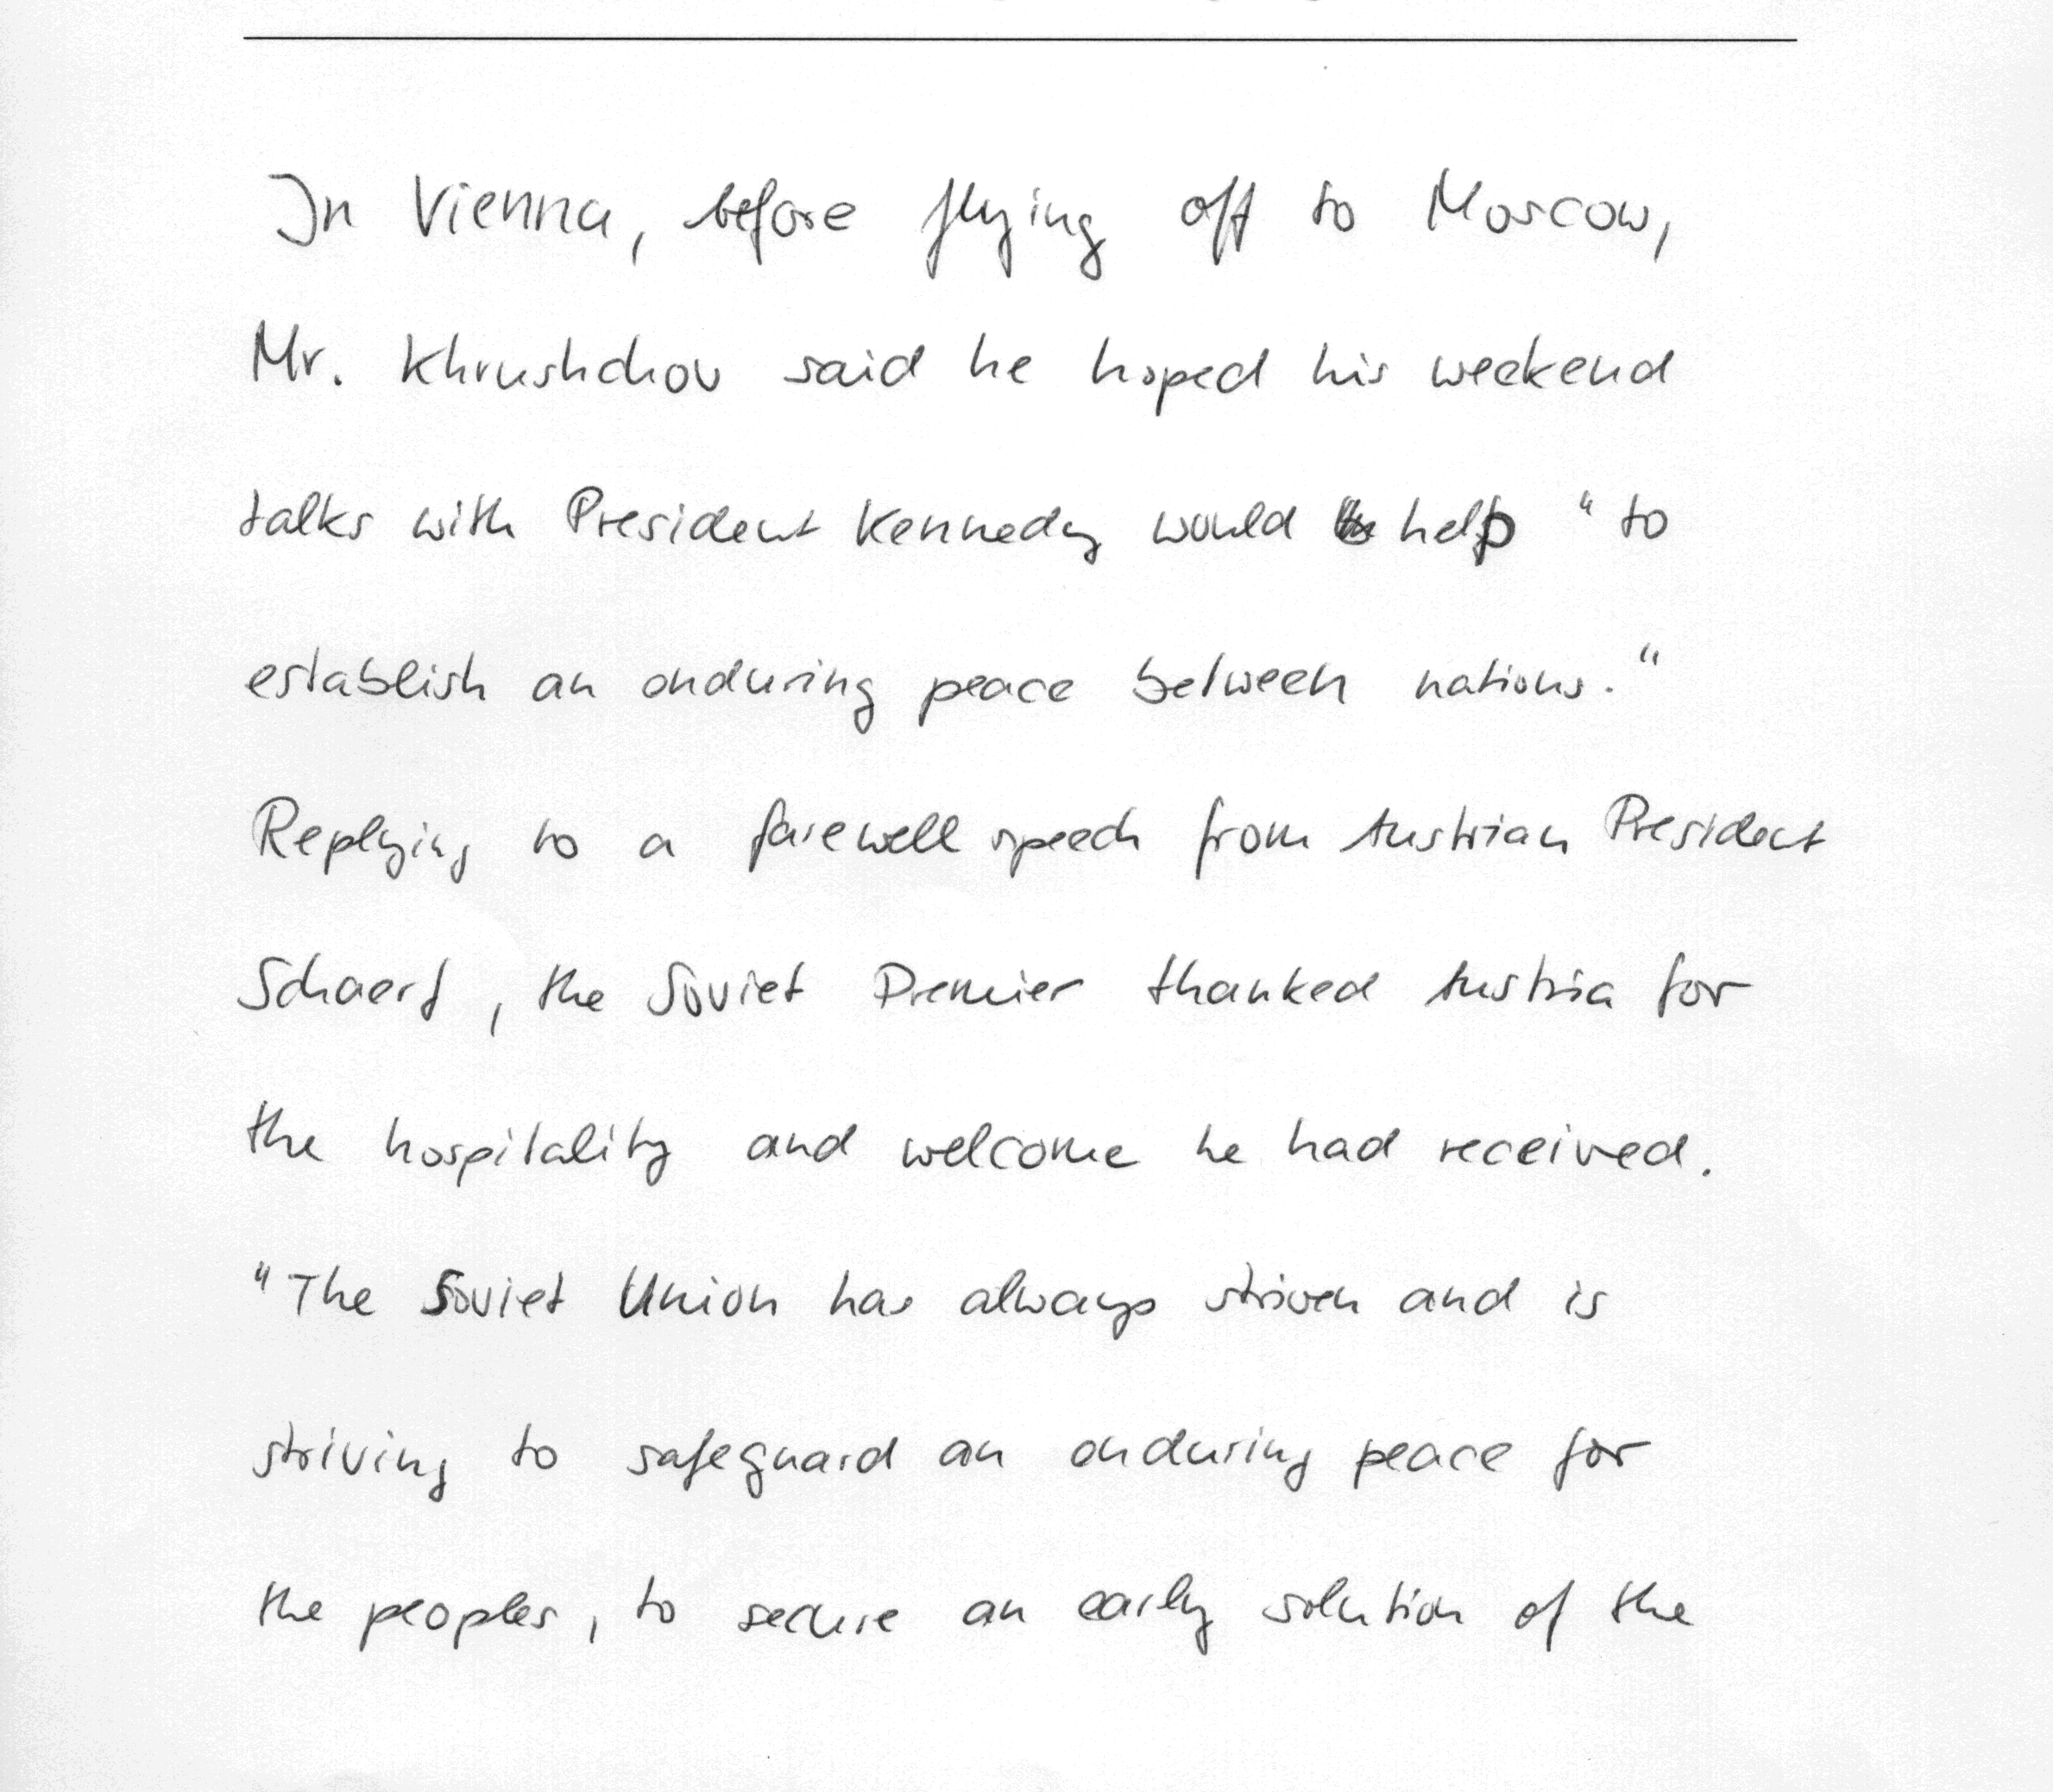 In Vienna, before flying off to Moscow,
Mr. Khrushchov said he hoped his weekend
talks with President Kennedy would help "to
establish an enduring peace between nations."
Replying to a farewell speech from Austrian President
Schaerf, the Soviet Premier thanked Austria for
the hospitality and welcome he had received.
"The Soviet Union has always striven and is
striving to safeguard an enduring peace for
the peoples, to secure an early solution of the